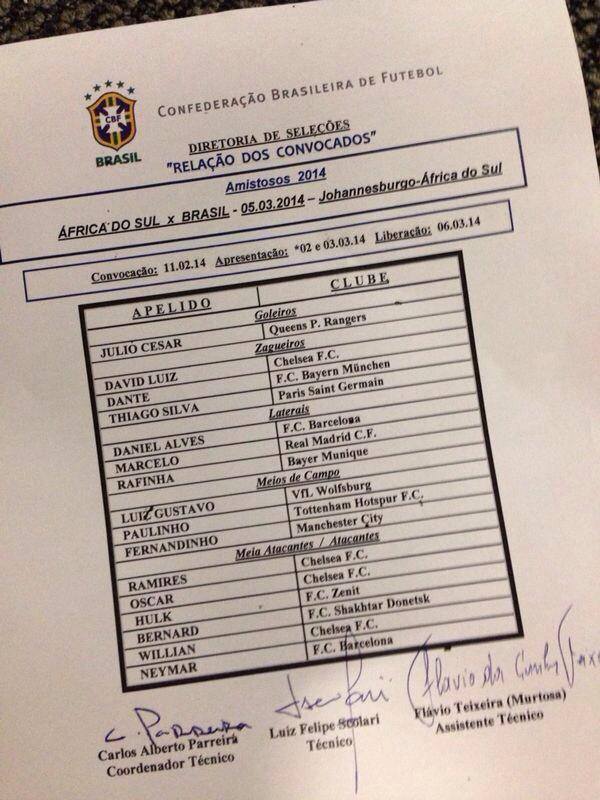 CBF
BRASIL
CONFEDERAÇÃO BRASILEIRA DE FUTEBOL
DIRETORIA DE SELEÇÕES
"RELAÇÃO DOS CONVOCADOS"
Amistosos 2014
ÁFRICA DO SUL x BRASIL - 05.03.2014 – Johannesburgo-África do Sul
Convocação: 11.02.14 Apresentação: *02 e 03.03.14 Liberação: 06.03.14
APELIDO CLUBE
Goleiros
JULIO CESAR Queens P. Rangers
Zagueiros
DAVID LUIZ Chelsea F.C.
DANTE F.C. Bayern München
THIAGO SILVA Paris Saint Germain
Laterais
DANIEL ALVES F.C. Barcelona
MARCELO Real Madrid C.F.
RAFINHA Bayer Munique
Meios de Campo
LUIZ GUSTAVO VfL Wolfsburg
PAULINHO Tottenham Hotspur F.C.
FERNANDINHO Manchester City
Meia Atacantes / Atacantes
RAMIRES Chelsea F.C.
OSCAR Chelsea F.C.
HULK F.C. Zenit
BERNARD F.C. Shakhtar Donetsk
WILLIAN Chelsea F.C.
NEYMAR F.C. Barcelona
C. Parreira
Carlos Alberto Parreira
Coordenador Técnico
Luiz Felipe Scolari
Técnico
Flavio da Cunha Teixe
Flávio Teixeira (Murtosa)
Assistente Técnico